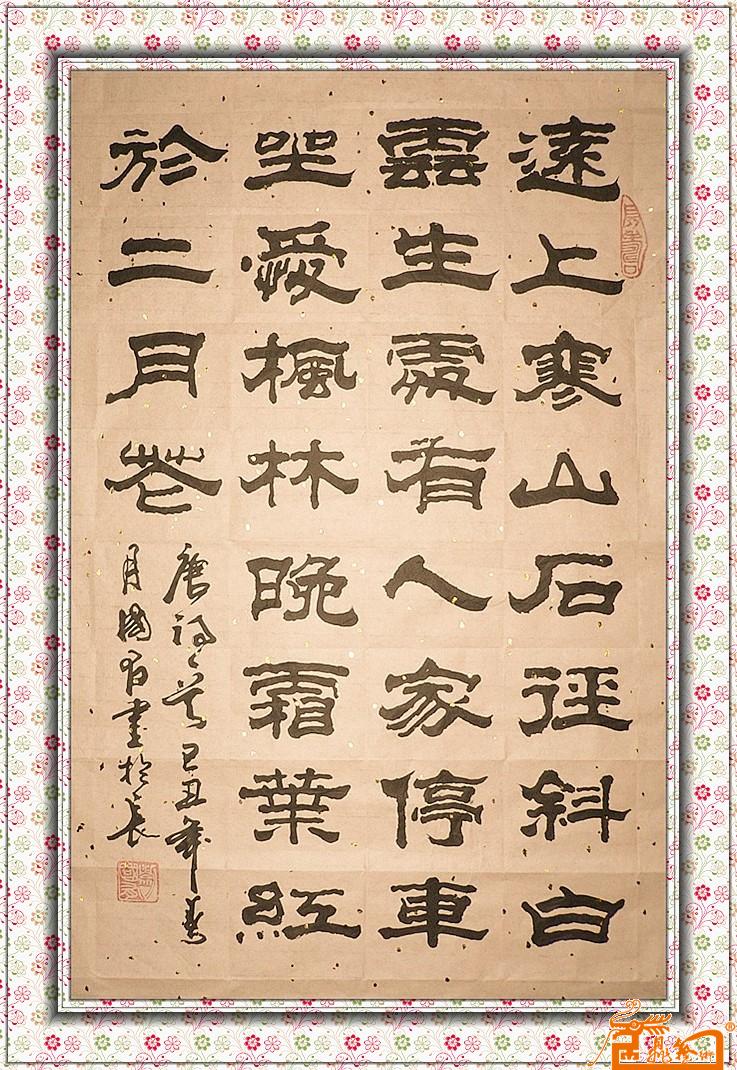 遠上寒山石徑斜白
雲生處有人家停車
坐愛楓林晚霜葉紅
於二月花
唐詩一首己丑年春
月國有書於長